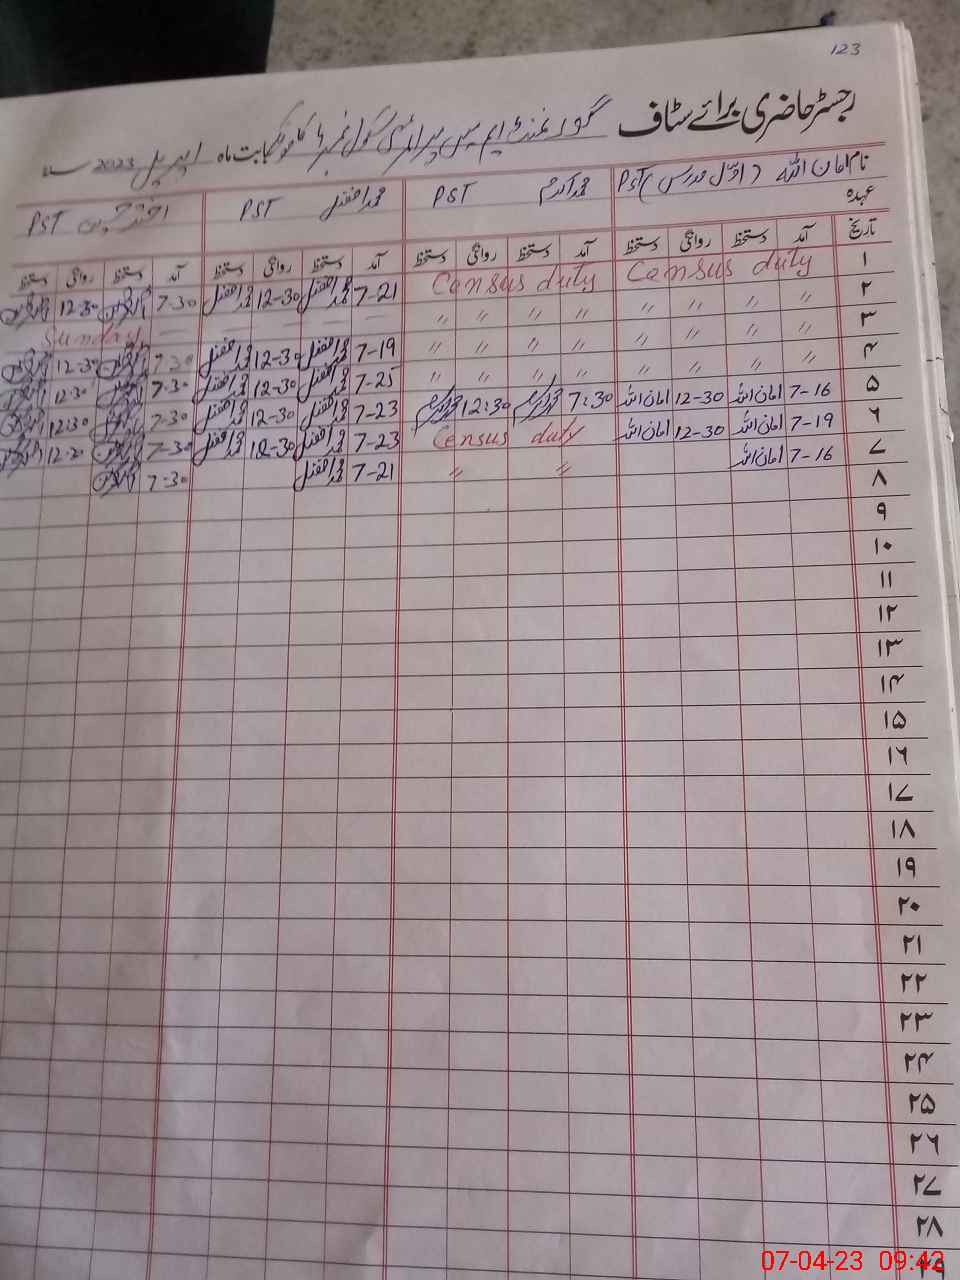 123
رجسٹر حاضری برائے سٹاف گورنمنٹ ایم سی پرائمری سکول نمبر کامونکی بابت ماہ اپریل 2023 سنہ
نام امان اللہ (اول مدرس) PST محمد اکرم PST محمد افضل PST اختر PST
عہدہ
تاریخ آمد دستخط روانگی دستخط آمد دستخط روانگی دستخط آمد دستخط روانگی دستخط آمد دستخط روانگی دستخط
۱ Census duty Census duty 7-21 محمد افضل 12-30 محمد افضل 7-30 12-30
۲ " " " " " " " " — — — — — — Sunday
۳ " " " " " " " " 7-19 محمد افضل 12-30 محمد افضل 7-30 12-30
۴ " " " " " " " " 7-25 محمد افضل 12-30 محمد افضل 7-30 12-30
۵ 7-16 امان اللہ 12-30 امان اللہ 7:30 محمد اکرم 12:30 محمد اکرم 7-23 محمد افضل 12-30 محمد افضل 7-30 12:30
۶ 7-19 امان اللہ 12-30 امان اللہ Census duty 7-23 محمد افضل 12-30 محمد افضل 7-30
۷ 7-16 امان اللہ " " 7-21 محمد افضل 7-30
۸
۹
۱۰
۱۱
۱۲
۱۳
۱۴
۱۵
۱۶
۱۷
۱۸
۱۹
۲۰
۲۱
۲۲
۲۳
۲۴
۲۵
۲۶
۲۷
۲۸
۲۹
07-04-23 09:42